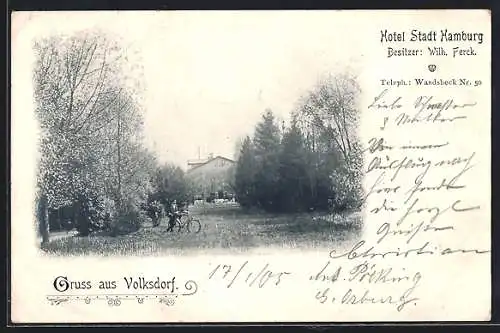 Hotel Stadt Hamburg
Besitzer: Wilh. Ferck.
Teleph.: Wandsbeck Nr. 50
Liebe Schwester
& Mutter
Von einem
Ausflug nach
hier senden
die herzl
Grüße
Christian
Gruss aus Volksdorf.
17/1/05